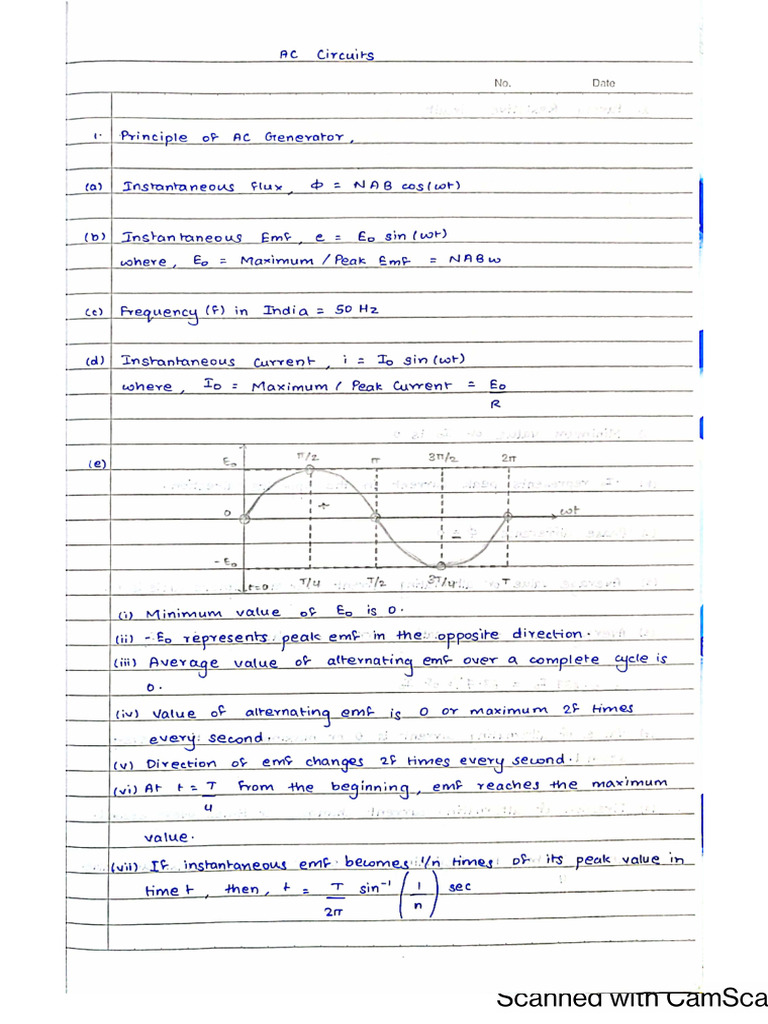 AC Circuits
No. Date
1. Principle of AC Generator,
(a) Instantaneous flux, Φ = NAB cos(ωt)
(b) Instantaneous Emf, e = E₀ sin(ωt)
where, E₀ = Maximum / Peak Emf = NABω
(c) Frequency (f) in India = 50 Hz
(d) Instantaneous Current, i = I₀ sin(ωt)
where, I₀ = Maximum / Peak Current = E₀
R
(e) E₀ π/2 π 3π/2 2π
0 + - ωt
-E₀
t=0 T/4 T/2 3T/4 T
(i) Minimum value of E₀ is 0.
(ii) -E₀ represents peak emf in the opposite direction.
(iii) Average value of alternating emf over a complete cycle is
0.
(iv) Value of alternating emf is 0 or maximum 2f times
every second.
(v) Direction of emf changes 2f times every second.
(vi) At t = T From the beginning, emf reaches the maximum
4
value.
(vii) If instantaneous emf becomes 1/n times of its peak value in
time t, then, t = T sin⁻¹ (1) sec
2π n
Scanned with CamSca